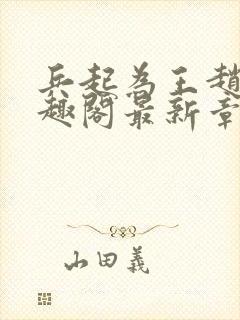 兵起為王趙
趣閣最新章
山田義